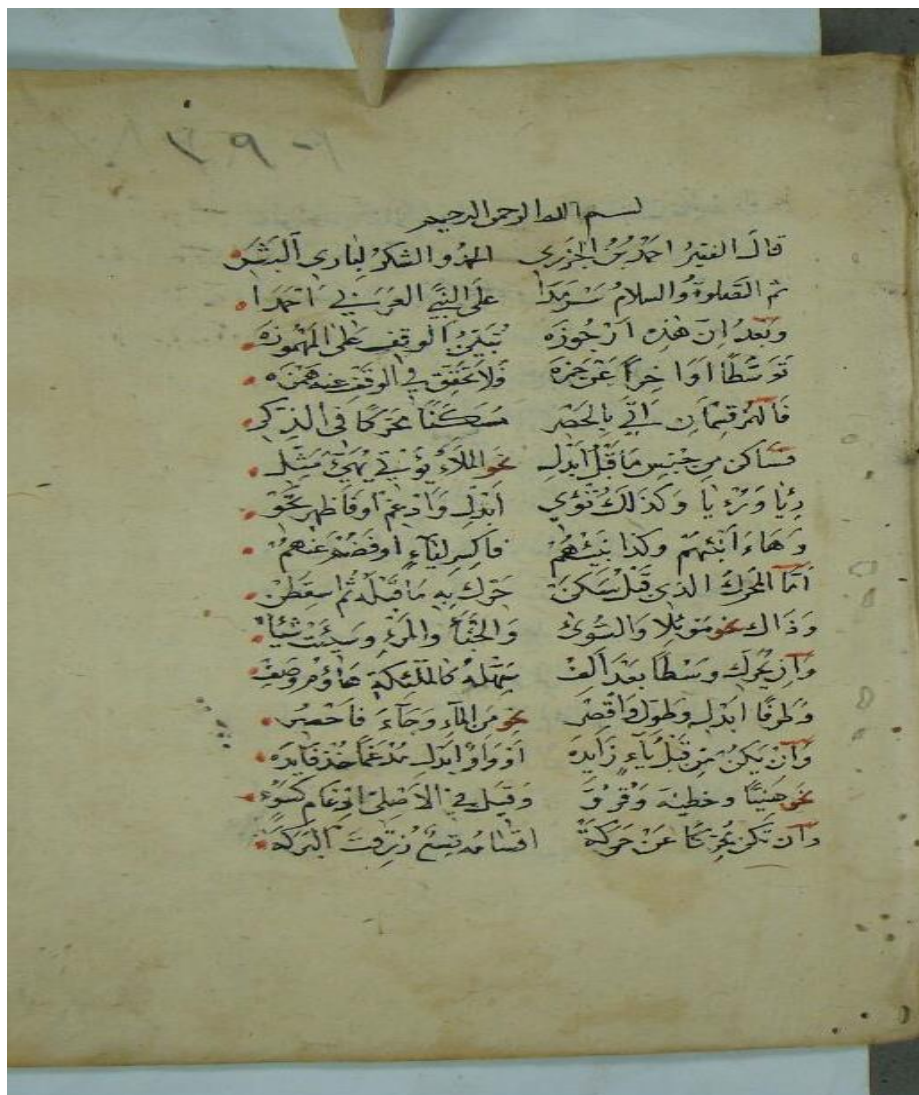 ٣٩٠٦
بسم الله الرحمن الرحيم
قال الفقير احمد بن الجزري الحمد والشكر لباري البشر
ثم الصلوة والسلام سرمدا على النبي العربي احمدا
وبعد ان هذه ارجوزة تبين الوقف على المهموزة
توسطا او اخرا عن حمزة فلا تحقق في الوقف عنه همزه
فالهمز قسمان اتى بالحصر مسكنا محركا في الذكر
فساكن من جنس ما قبل ابدل نحو الملاء يؤتي يهيئ مثل
رئيا ورءيا وكذلك تؤي ابدل وادغم او فاظهر نحو
وهاء انبئهم وكذا نبئهم فاكسر لياء او فضمه عنهم
اما المحرك الذي قبل سكن حرك به ما قبله ثم اسقطن
وذاك نحو موئلا والسوئ والخبأ والمرء وسيئت شيئا
وان يحرك وسطا بعد الف سهله كالملئكة هاؤم وصف
وطرفا ابدله وطول واقصر نحو من الماء وجاء فاحصر
وان يكن من قبل ياء زايده او واو ابدل مدغما خذ فايده
نحو هنيئا وخطيئة وقرو وقيل في الاصلي ادغام كسوء
وان تكن محركا عن حركة اقسامه تسع رزقت البركة